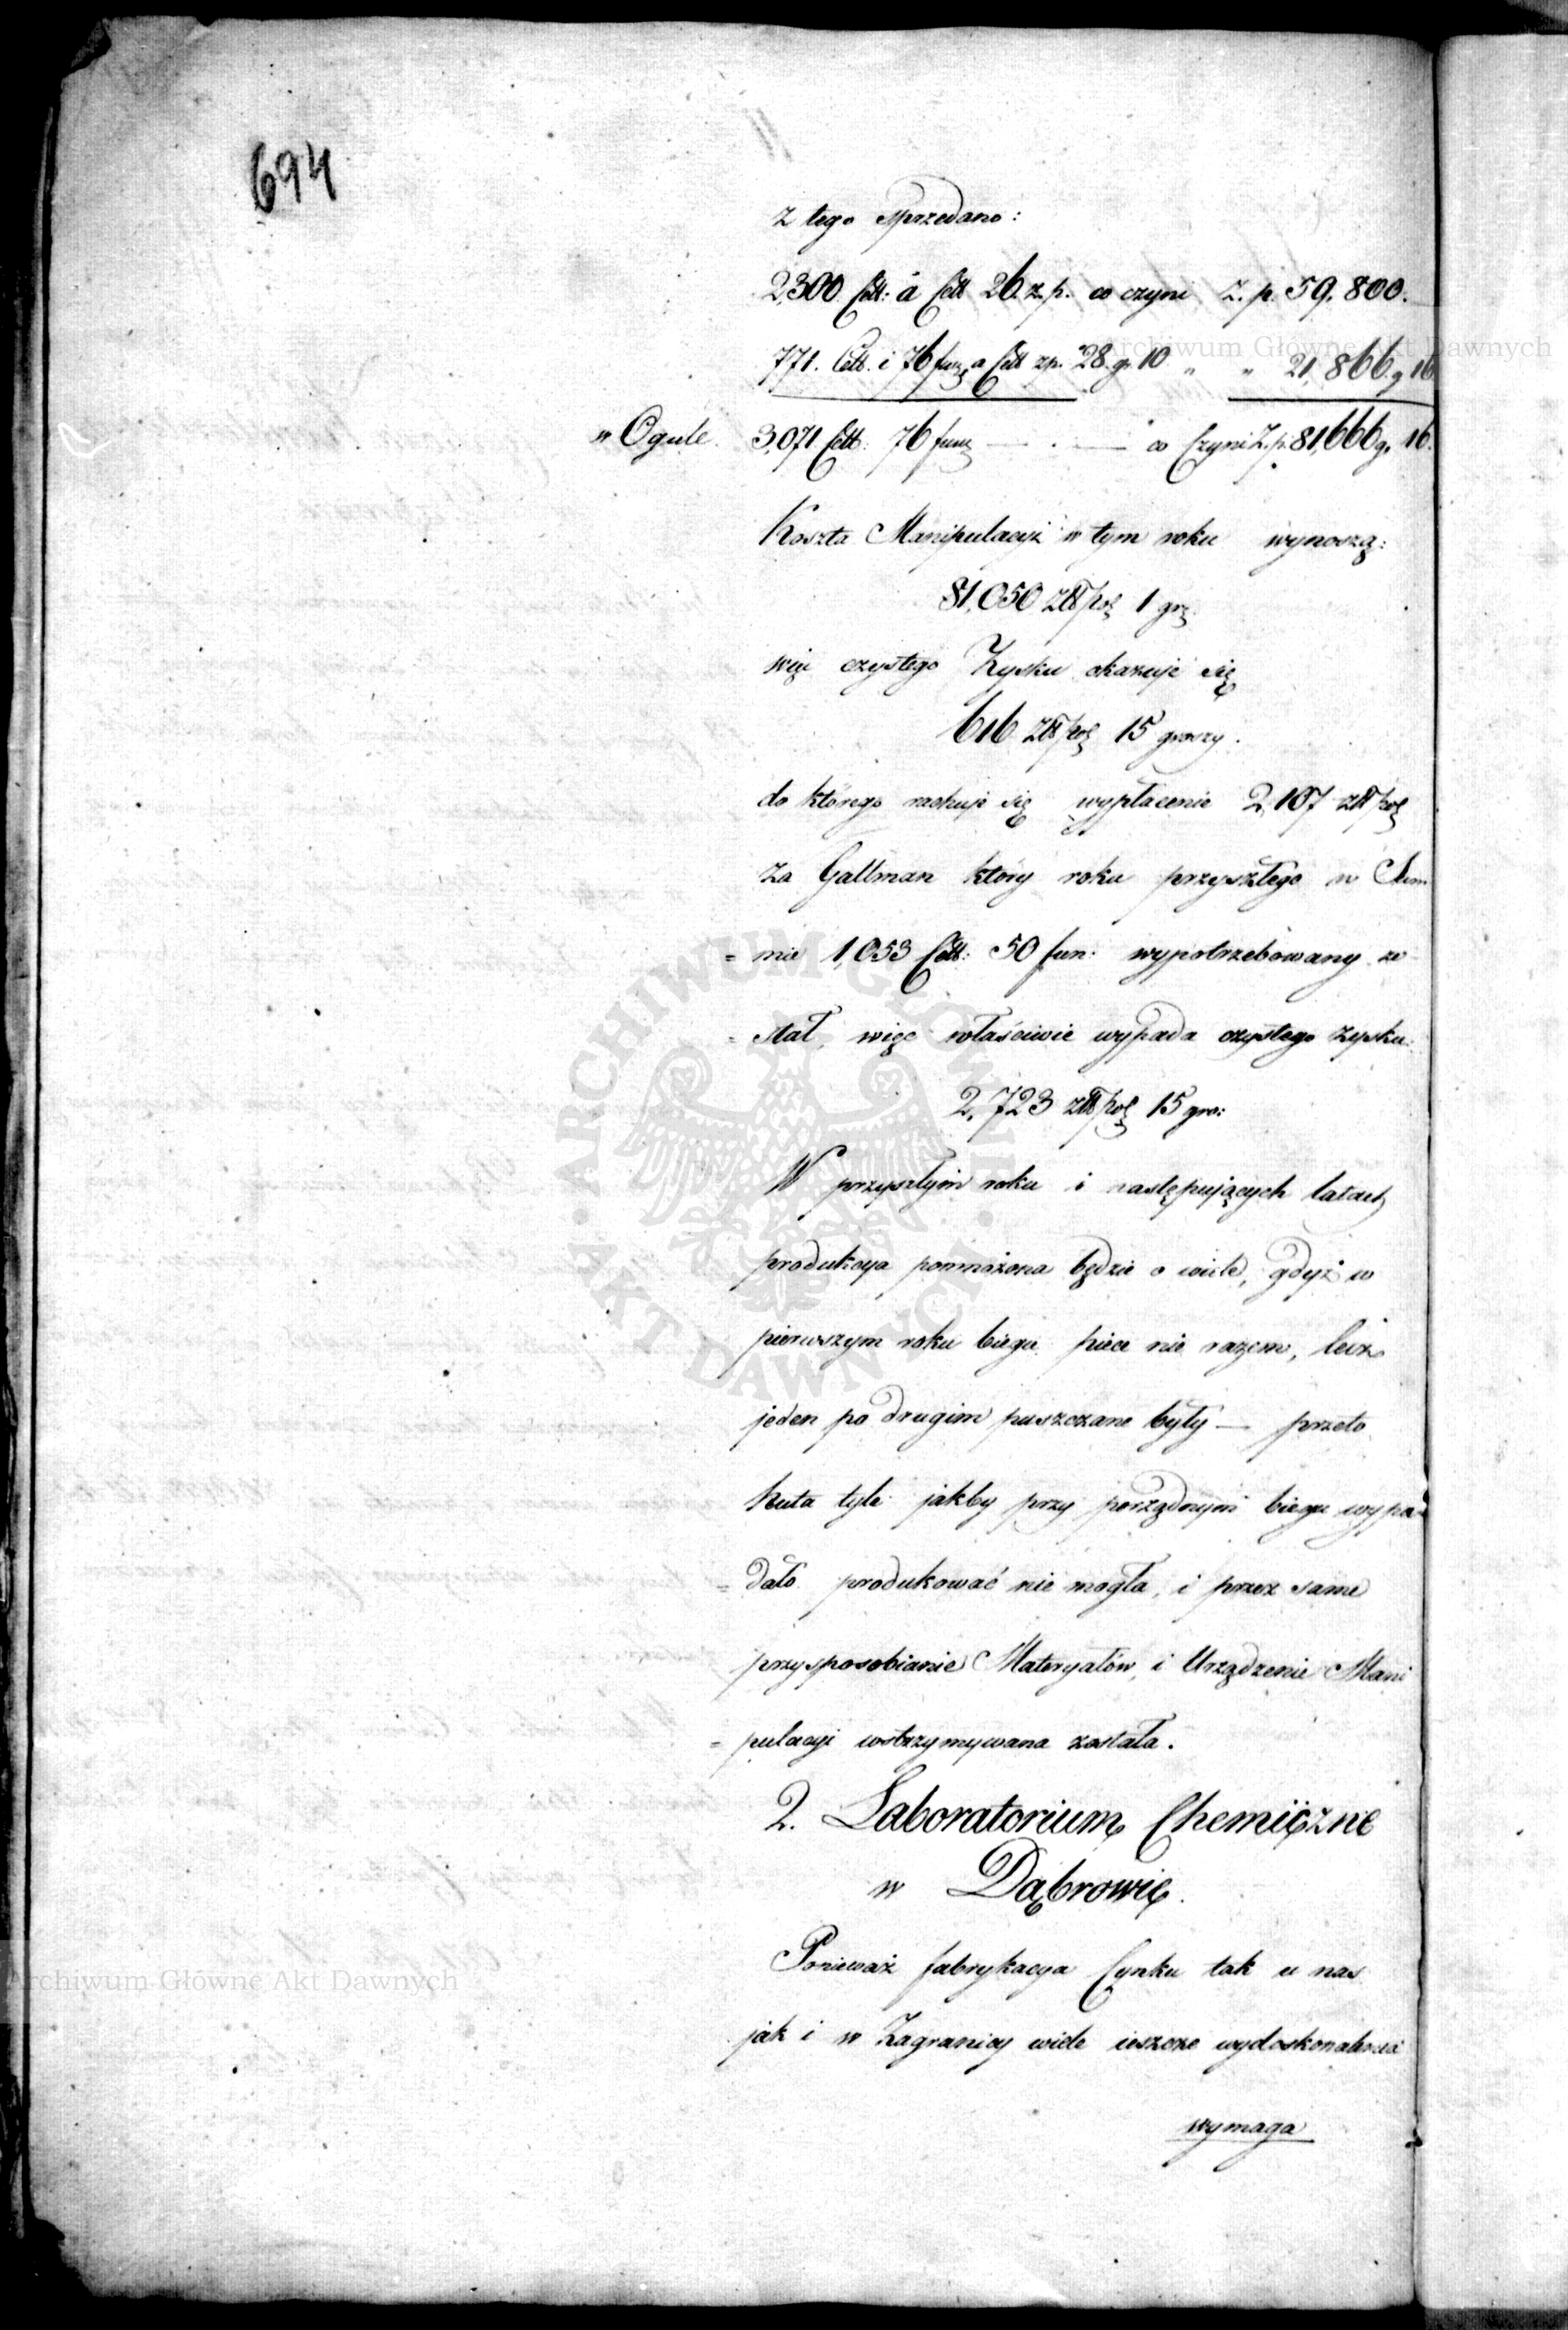 694
Z tego sprzedano:
2,300 Cett: à Cett 26 z.p. co czyni Z. p. 59,800.
771. Cett. i 76 funz a Cett zp. 28. gr 10 " " 21,866 g 16
w Ogule 3,071 Cett: 76 funz — . — co Czyni Z.p. 81,666 g. 16.
Koszta Manipulacyi w tym roku wynoszą:
81,050 złł pol 1 gr.
więc czystego Zysku okazuje się
616 złł pol 15 groszy.
do którego rachuje się wypłacenie 2,107 złł pol
za Gallman który roku przyszłego w Sum
= mie 1,053 Cett: 50 fun: wypotrzebowany zo
= stał, więc właściwie wypada czystego zysku:
2,723 złł pol 15 gro:
W przyszłym roku i następujących latach
produkcya pomnożona będzie o wiele, gdyż w
pierwszym roku biegu piece nie razem, lecz
jeden po drugim puszczane były — przeto
huta tyle jakby przy porządnym biegu wypa
= dało produkować nie mogła, i przez same
przysposobianie Materyałów, i Urządzenie Mani
= pulacyi wstrzymywana została.
2. Laboratorium Chemiczne
w Dąbrowie.
Ponieważ fabrykacya Cynku tak u nas
jak i w Zagranicy wiele ieszcze wydoskonalenia
wymaga
Archiwum Główne Akt Dawnych
Archiwum Główne Akt Dawnych
· ARCHIWUM GŁÓWNE · AKT DAWNYCH